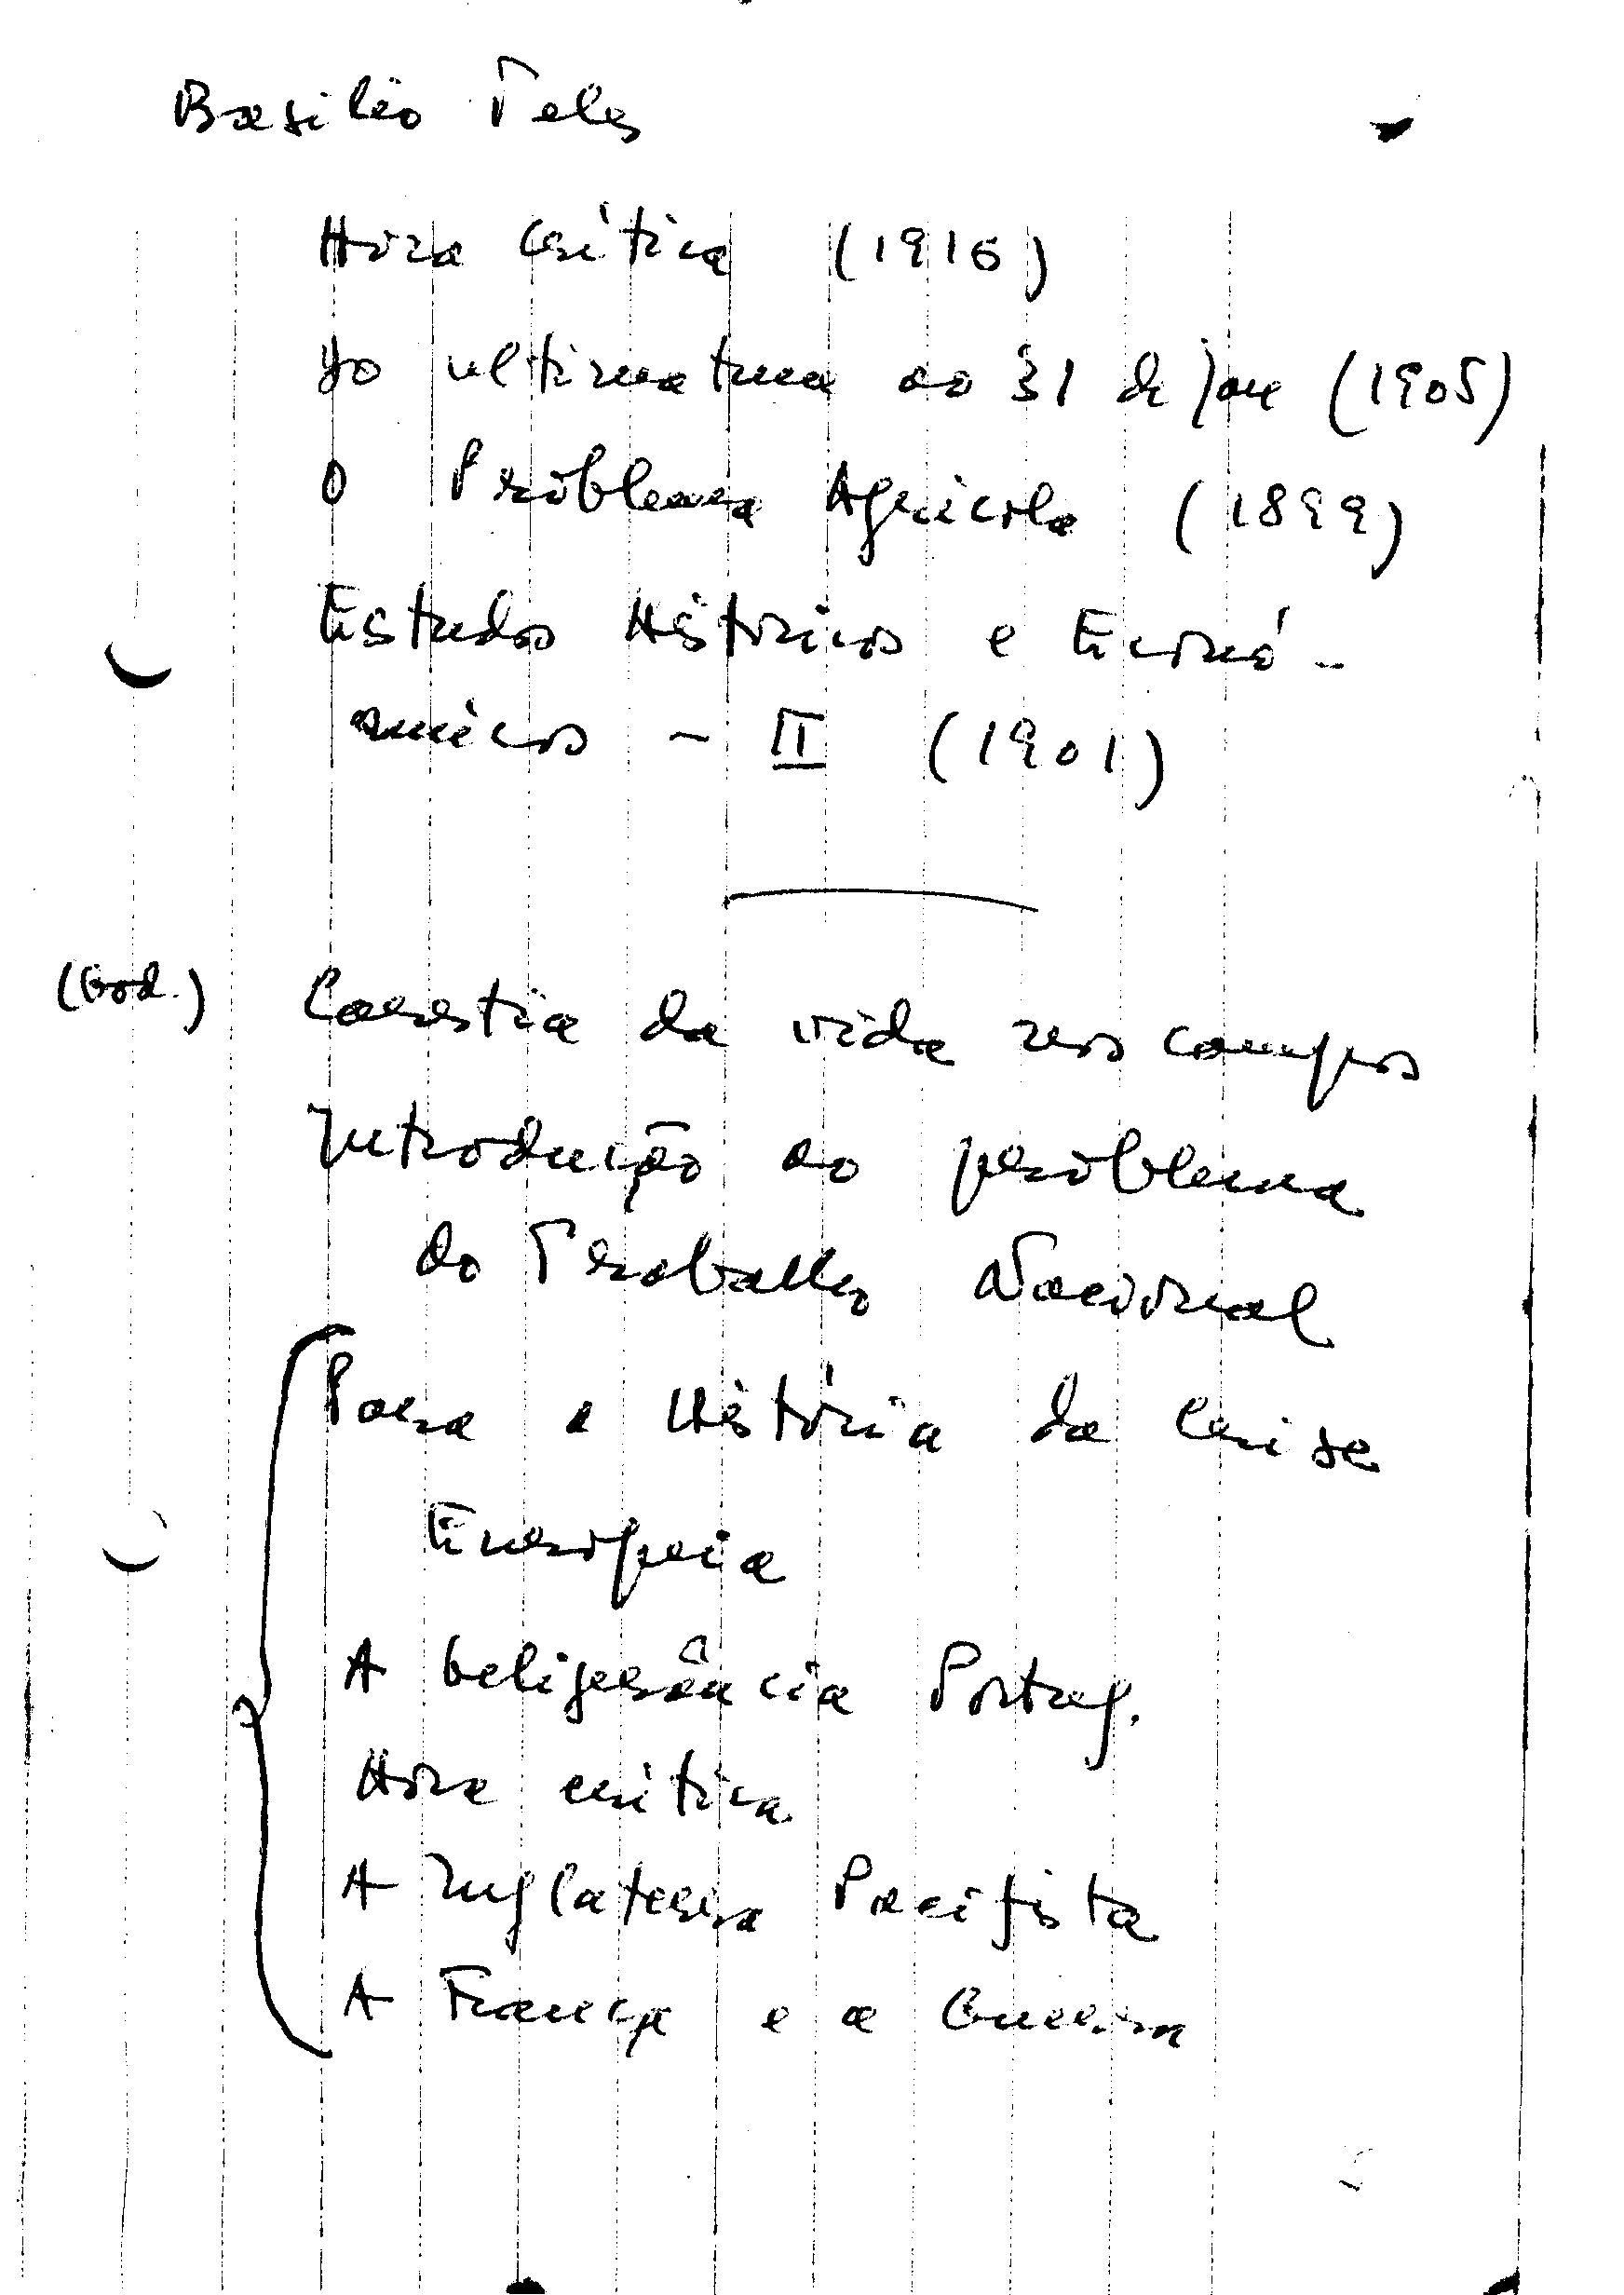 Basílio Teles
Hora Crítica (1916)
Do ultimatum ao 31 de Jan (1905)
O Problema Agrícola (1899)
Estudos Históricos e Econó-
micos - II (1901)
(God.) Carestia da vida nos campos
Introdução ao problema
do Trabalho Nacional
Para a História da Crise
Europeia
A beligerância Portug.
Hora crítica
A Inglaterra Pacifista
A França e a Guerra